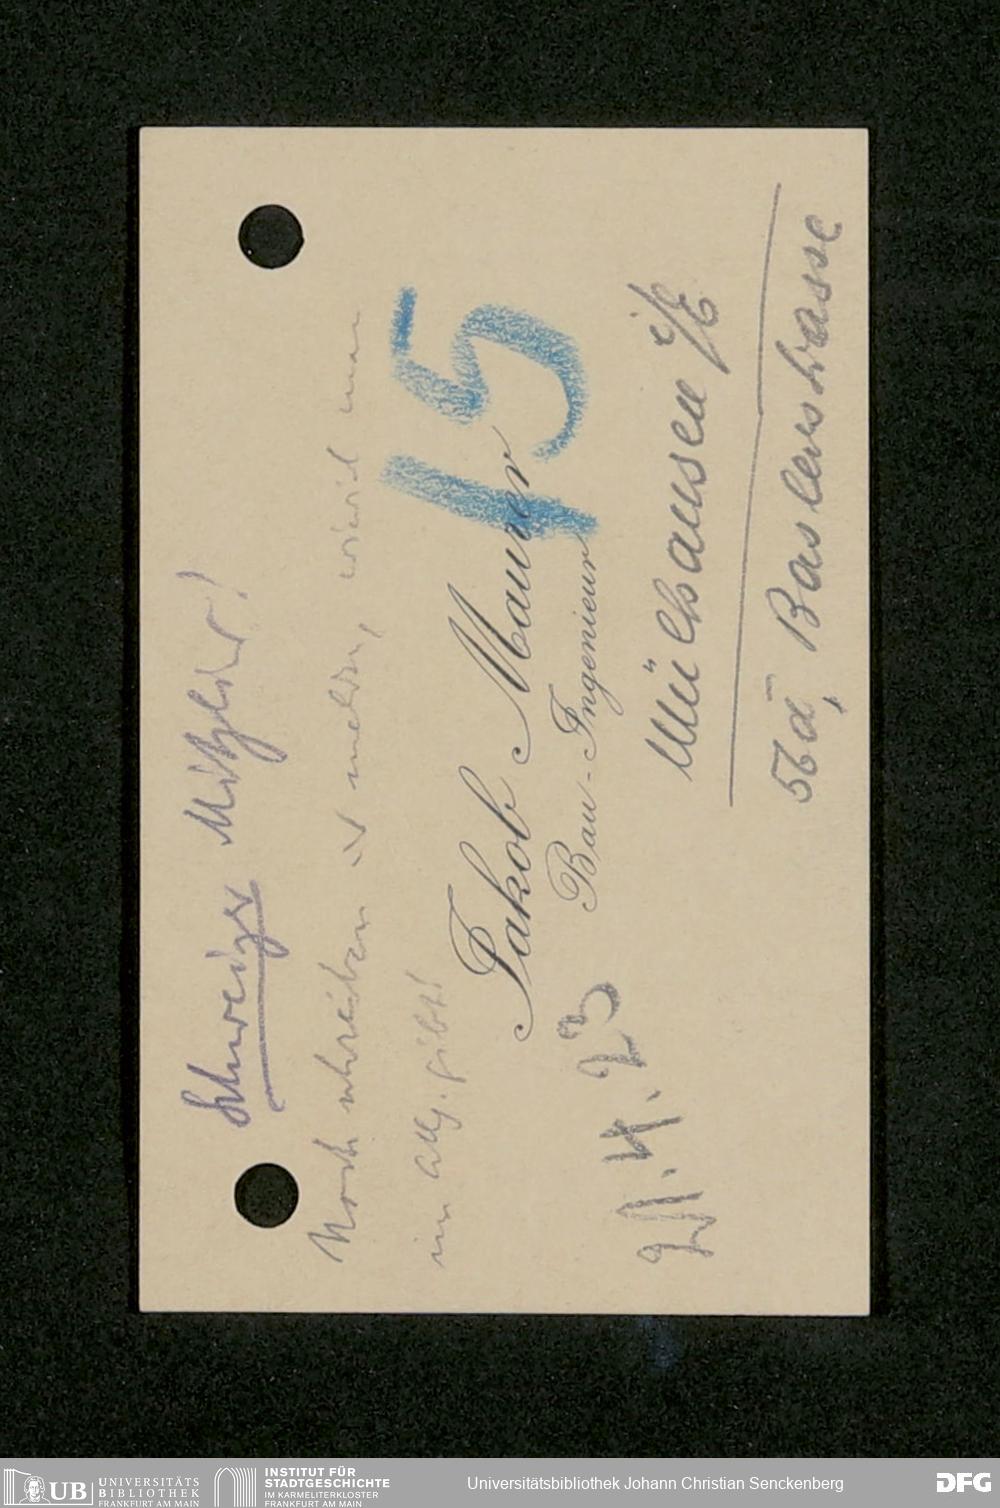 Schweizer Mitglied!
Noch schreiben u melden, wieviel man
im allg. gibt!
15
Jakob Maurer
Bau-Ingenieur
21.4.23
Mülhausen i/E
56a, Baslerstrasse
UB UNIVERSITÄTS
BIBLIOTHEK
FRANKFURT AM MAIN
INSTITUT FÜR
STADTGESCHICHTE
IM KARMELITERKLOSTER
FRANKFURT AM MAIN
Universitätsbibliothek Johann Christian Senckenberg
DFG